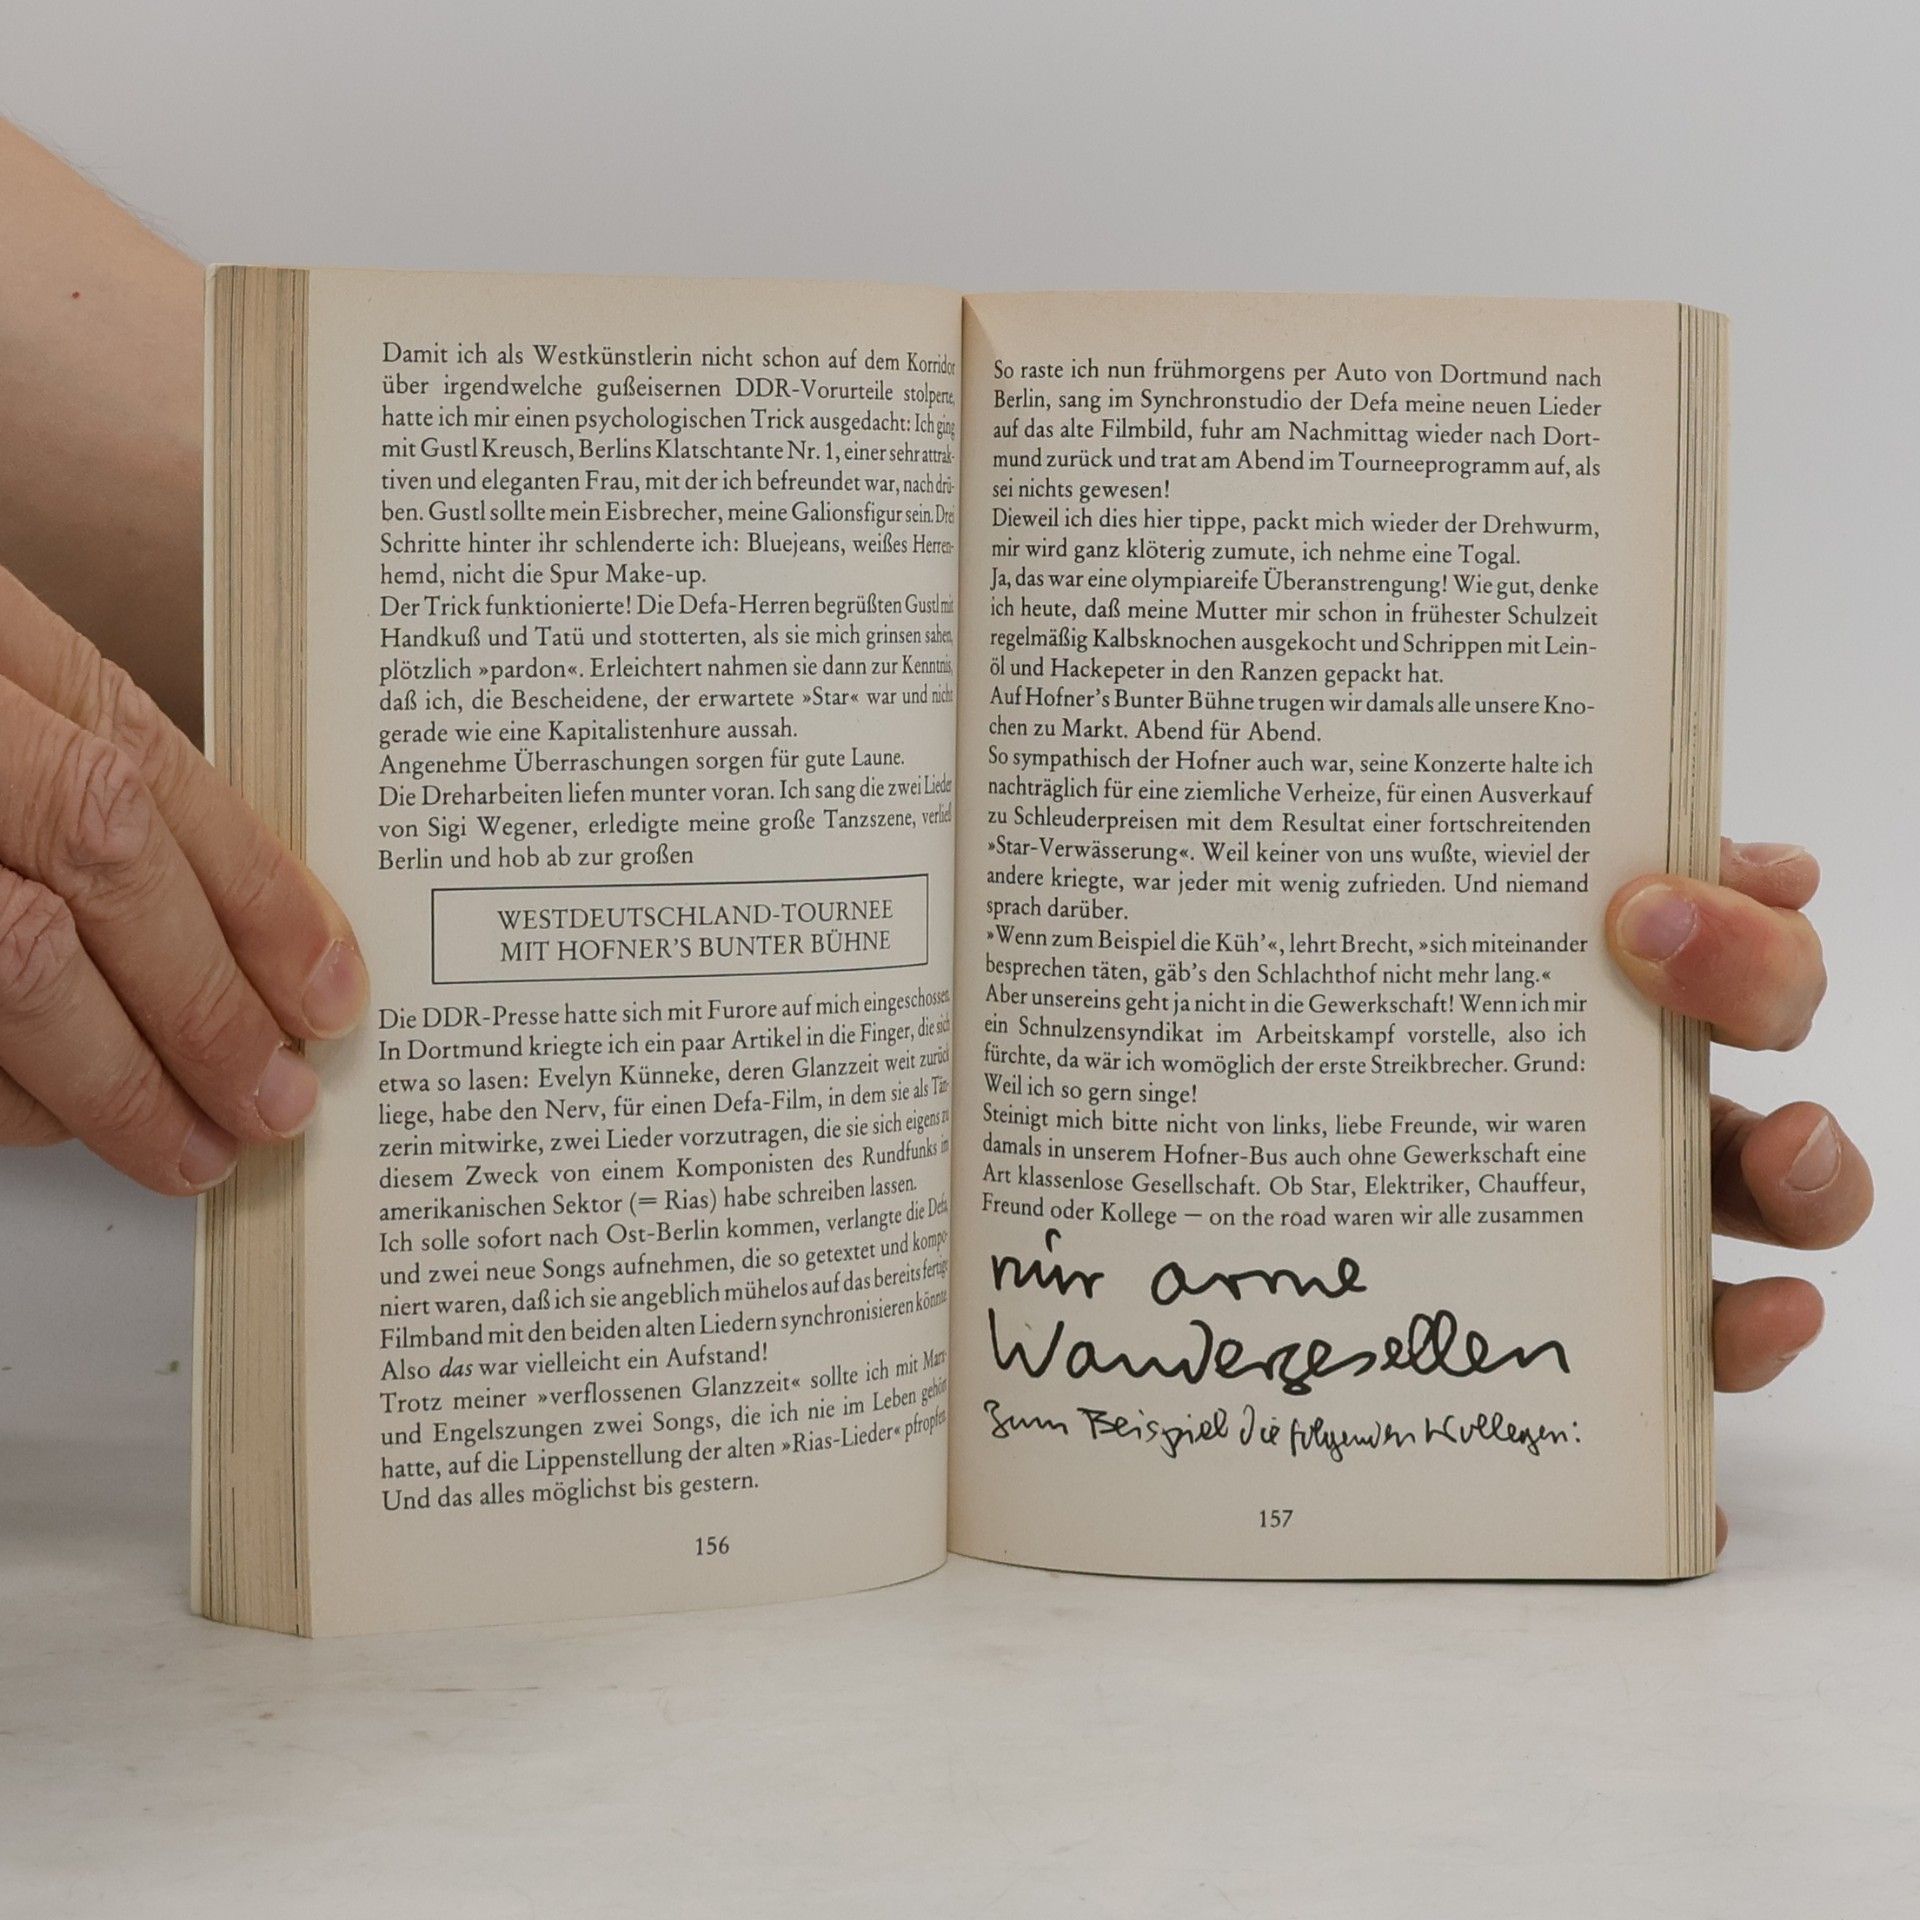 Damit ich als Westkünstlerin nicht schon auf dem Korridor
über irgendwelche gußeisernen DDR-Vorurteile stolperte,
hatte ich mir einen psychologischen Trick ausgedacht: Ich ging
mit Gustl Kreusch, Berlins Klatschtante Nr. 1, einer sehr attrak-
tiven und eleganten Frau, mit der ich befreundet war, nach drü-
ben. Gustl sollte mein Eisbrecher, meine Galionsfigur sein. Drei
Schritte hinter ihr schlenderte ich: Bluejeans, weißes Herren-
hemd, nicht die Spur Make-up.
Der Trick funktionierte! Die Defa-Herren begrüßten Gustl mit
Handkuß und Tatü und stotterten, als sie mich grinsen sahen,
plötzlich »pardon«. Erleichtert nahmen sie dann zur Kenntnis,
daß ich, die Bescheidene, der erwartete »Star« war und nicht
gerade wie eine Kapitalistenhure aussah.
Angenehme Überraschungen sorgen für gute Laune.
Die Dreharbeiten liefen munter voran. Ich sang die zwei Lieder
von Sigi Wegener, erledigte meine große Tanzszene, verließ
Berlin und hob ab zur großen
WESTDEUTSCHLAND-TOURNEE
MIT HOFNER'S BUNTER BÜHNE
Die DDR-Presse hatte sich mit Furore auf mich eingeschossen.
In Dortmund kriegte ich ein paar Artikel in die Finger, die sich
etwa so lasen: Evelyn Künneke, deren Glanzzeit weit zurück
liege, habe den Nerv, für einen Defa-Film, in dem sie als Tän-
zerin mitwirke, zwei Lieder vorzutragen, die sie sich eigens zu
diesem Zweck von einem Komponisten des Rundfunks im
amerikanischen Sektor (= Rias) habe schreiben lassen.
Ich solle sofort nach Ost-Berlin kommen, verlangte die Defa,
und zwei neue Songs aufnehmen, die so getextet und kompo-
niert waren, daß ich sie angeblich mühelos auf das bereits fertige
Filmband mit den beiden alten Liedern synchronisieren könnte.
Also das war vielleicht ein Aufstand!
Trotz meiner »verflossenen Glanzzeit« sollte ich mit Marx-
und Engelszungen zwei Songs, die ich nie im Leben gehört
hatte, auf die Lippenstellung der alten »Rias-Lieder« pfropfen.
Und das alles möglichst bis gestern.
156
So raste ich nun frühmorgens per Auto von Dortmund nach
Berlin, sang im Synchronstudio der Defa meine neuen Lieder
auf das alte Filmbild, fuhr am Nachmittag wieder nach Dort-
mund zurück und trat am Abend im Tourneeprogramm auf, als
sei nichts gewesen!
Dieweil ich dies hier tippe, packt mich wieder der Drehwurm,
mir wird ganz klöterig zumute, ich nehme eine Togal.
Ja, das war eine olympiareife Überanstrengung! Wie gut, denke
ich heute, daß meine Mutter mir schon in frühester Schulzeit
regelmäßig Kalbsknochen ausgekocht und Schrippen mit Lein-
öl und Hackepeter in den Ranzen gepackt hat.
Auf Hofner's Bunter Bühne trugen wir damals alle unsere Kno-
chen zu Markt. Abend für Abend.
So sympathisch der Hofner auch war, seine Konzerte halte ich
nachträglich für eine ziemliche Verheize, für einen Ausverkauf
zu Schleuderpreisen mit dem Resultat einer fortschreitenden
»Star-Verwässerung«. Weil keiner von uns wußte, wieviel der
andere kriegte, war jeder mit wenig zufrieden. Und niemand
sprach darüber.
»Wenn zum Beispiel die Küh'«, lehrt Brecht, »sich miteinander
besprechen täten, gäb's den Schlachthof nicht mehr lang.«
Aber unsereins geht ja nicht in die Gewerkschaft! Wenn ich mir
ein Schnulzensyndikat im Arbeitskampf vorstelle, also ich
fürchte, da wär ich womöglich der erste Streikbrecher. Grund:
Weil ich so gern singe!
Steinigt mich bitte nicht von links, liebe Freunde, wir waren
damals in unserem Hofner-Bus auch ohne Gewerkschaft eine
Art klassenlose Gesellschaft. Ob Star, Elektriker, Chauffeur,
Freund oder Kollege — on the road waren wir alle zusammen
nur arme
Wandergesellen
zum Beispiel die folgenden Kollegen:
157